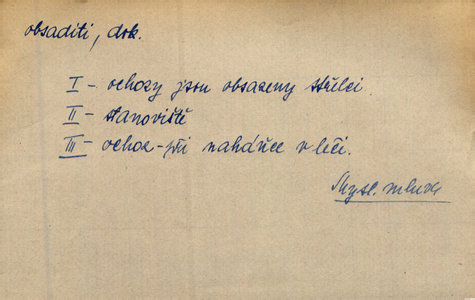 obsaditi, dok.
I – ochozy jsou obsazeny střelci.
II – stanoviště
III – ochoz – při naháňce v léči.
Mysl. mluva